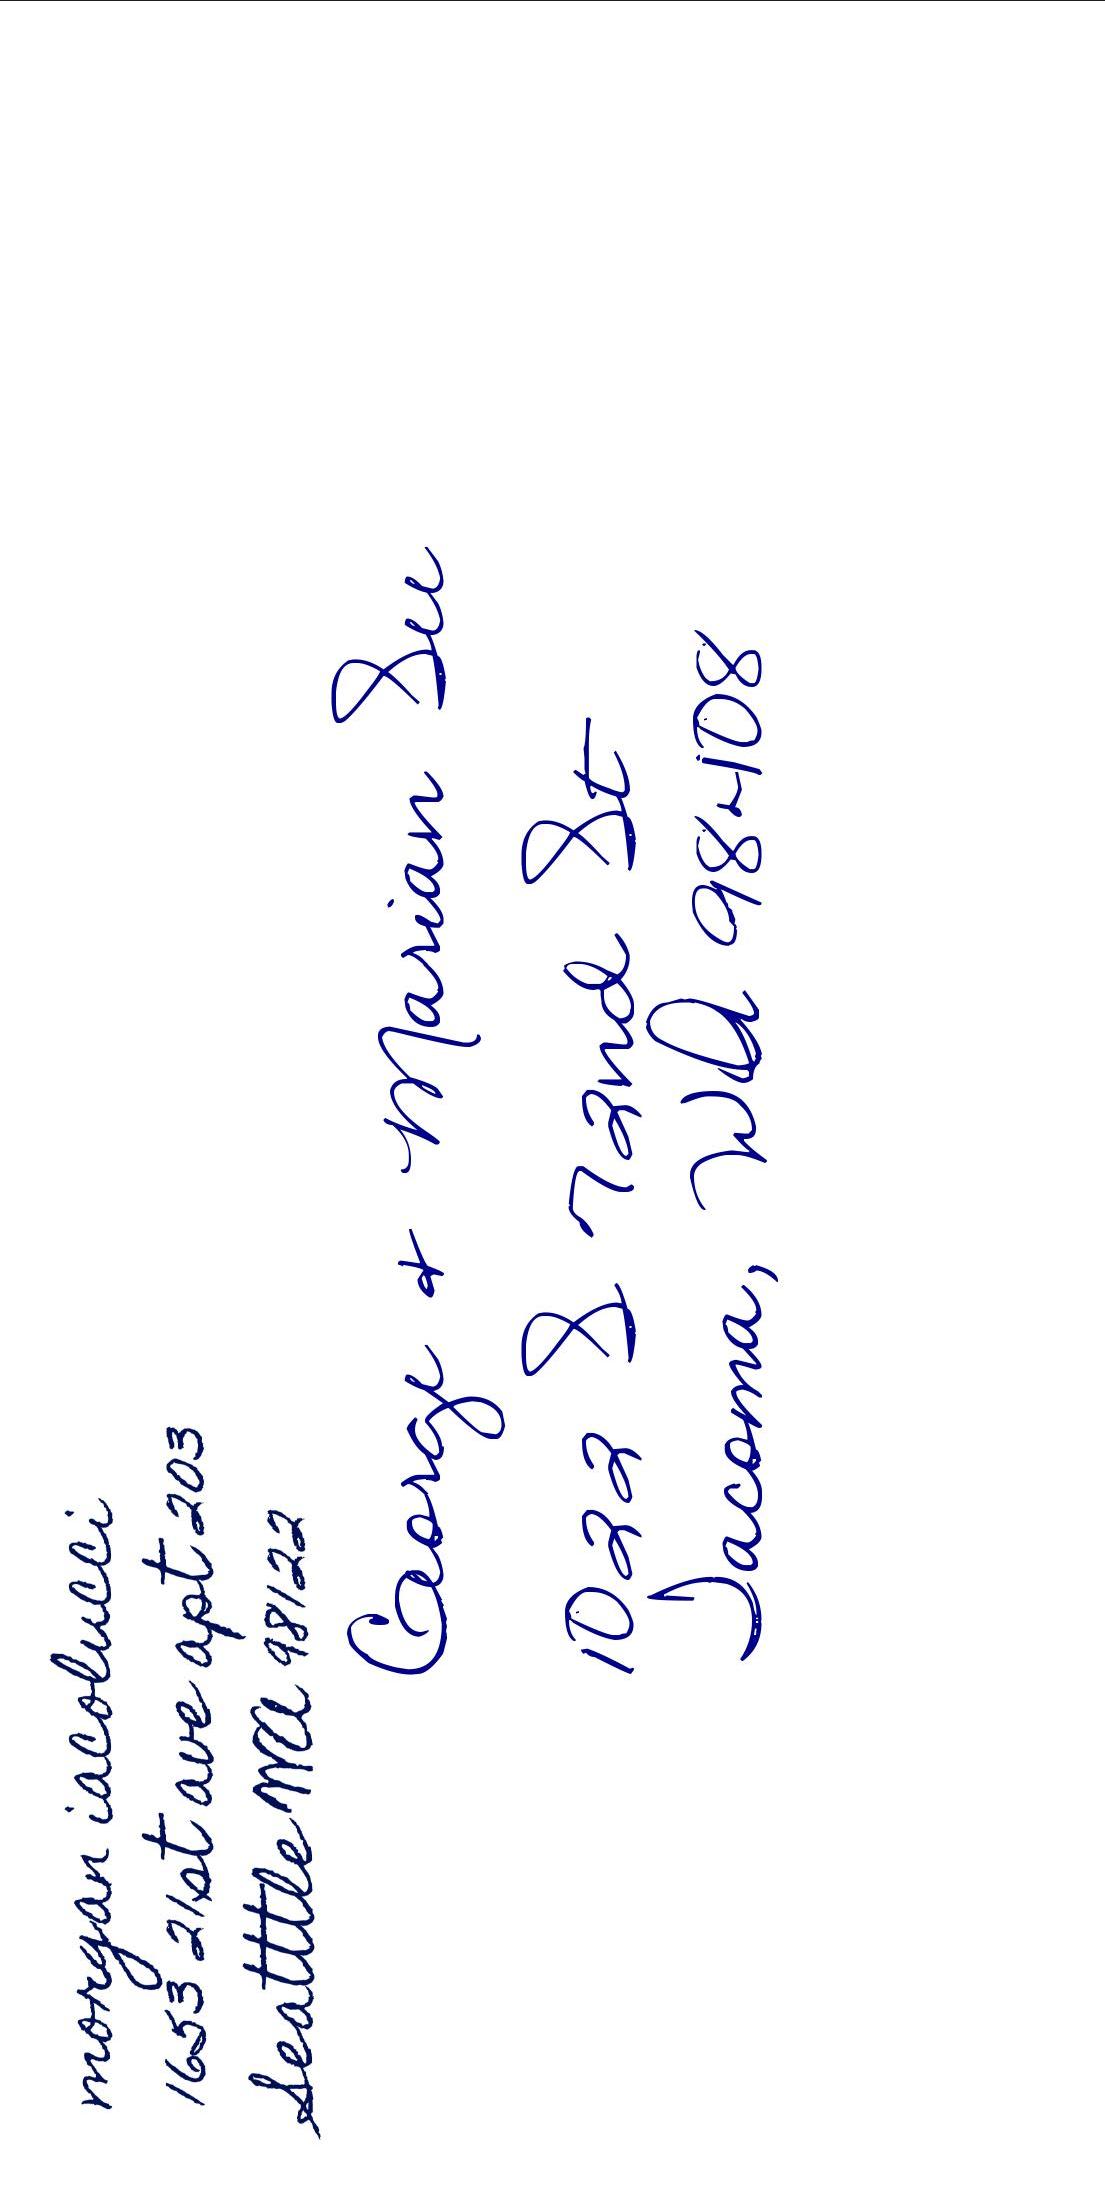 morgan iacolucci
1653 21st ave apt 203
Seatttle WA 98122
George & Marian Suu
1022 S 72nd St
Tacoma, WA 98408